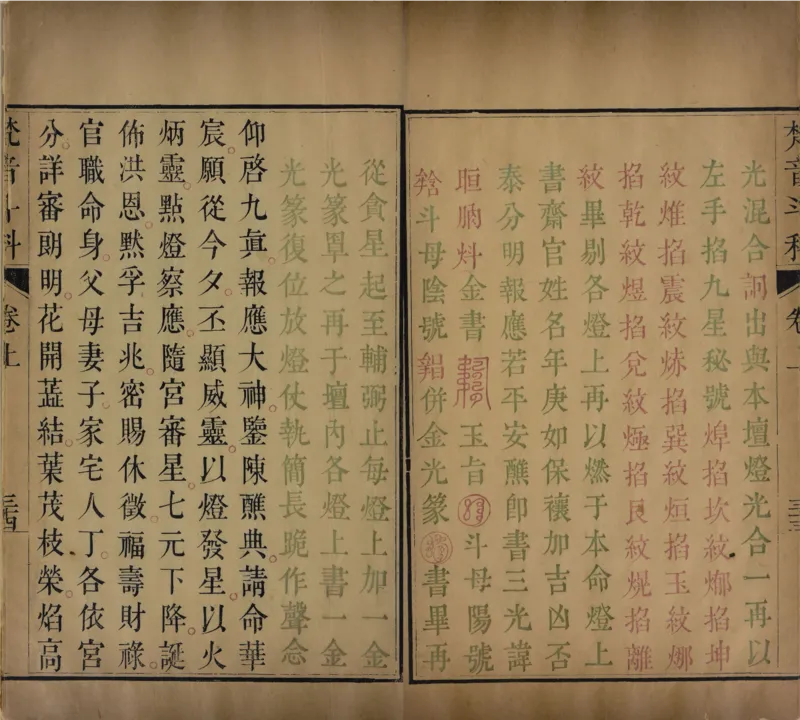 梵音斗科 卷
光混合出與本壇燈光合一再以
左手掐九星秘號掐坎紋掐坤
紋掐震紋掐巽紋烜掐玉紋
掐乾紋煜掐兌紋掐艮紋熀掐離
紋畢剔各燈上再以燃于本命燈上
書齋官姓名年庚如保禳加吉凶否
泰分明報應若平安醮卽書三光諱
金書玉旨斗母陽號
斗母陰號併金光篆書畢再
從貪星起至輔弼止每燈上加一金
光篆單之再于壇內各燈上書一金
光篆復位放燈仗執簡長跪作聲念
仰啓九眞。報應大神。鑒陳醮典。請命華
宸。願從今夕。丕顯威靈。以燈發星。以火
炳靈。點燈察應。隨宮審星。七元下降。誕
佈洪恩。默孚吉兆。密賜休徵。福壽財祿。
官職命身。父母妻子。家宅人丁。各依宮
分。詳審朗明。花開蕋結。葉茂枝榮。焰高
梵音斗科 卷上 三四